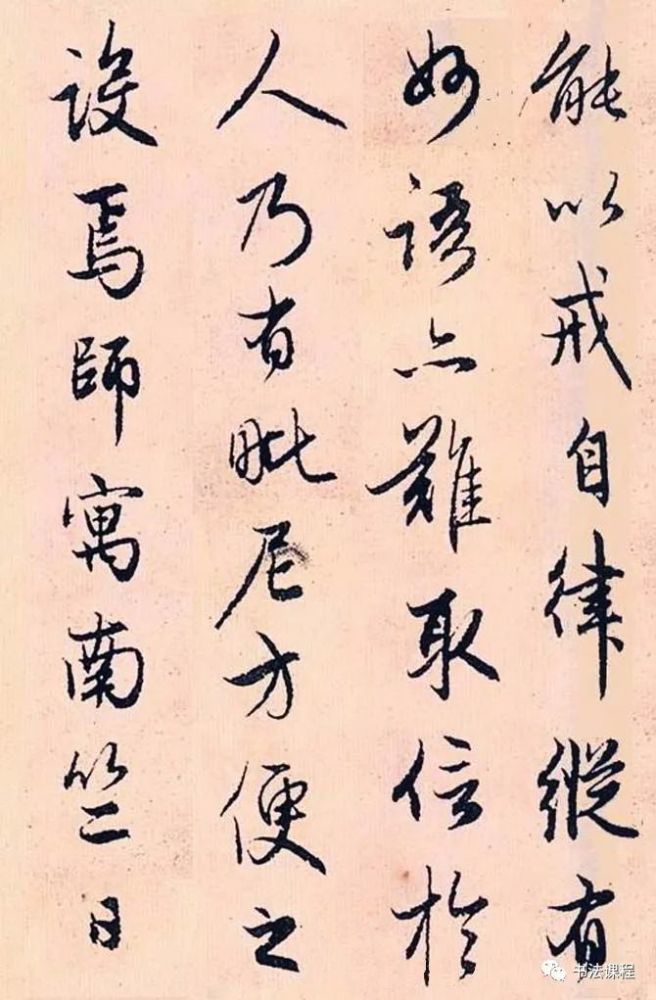 能以戒自律縱有
妙語亦難取信於
人乃有毗尼方便之
設焉師寓南竺日
书法课程